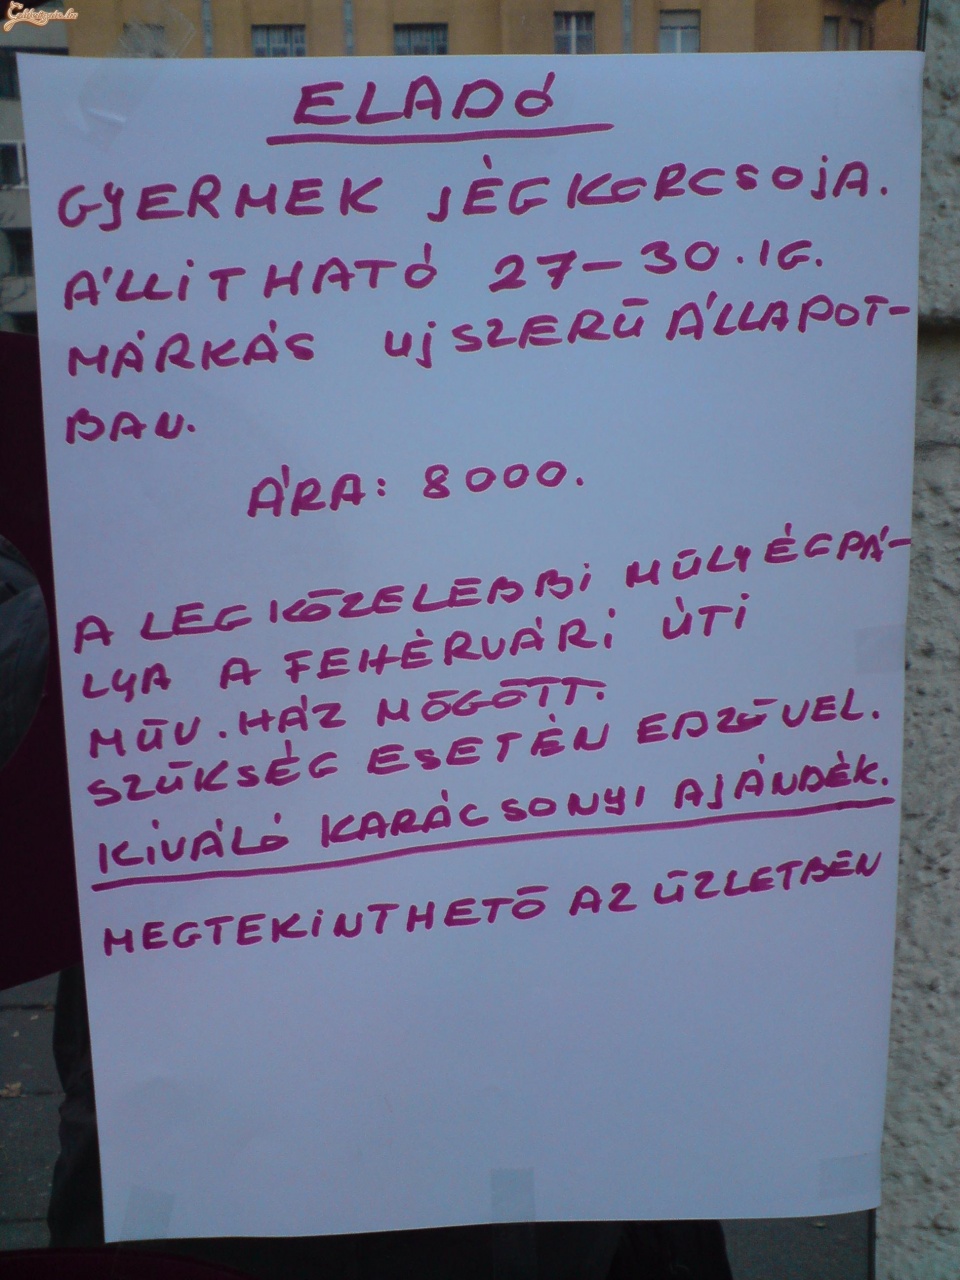 ELADÓ
GYERMEK JÉGKORCSOJA.
ÁLLITHATÓ 27-30.IG.
MÁRKÁS UJSZERŰ ÁLLAPOT-
BAN.
ÁRA: 8000.
A LEGKÖZELEBBI MŰLYÉGPÁ-
LYA A FEHÉRVÁRI ÚTI
MŰV.HÁZ MÖGÖTT.
SZÜKSÉG ESETÉN EDZŐVEL.
KIVÁLÓ KARÁCSONYI AJÁNDÉK.
MEGTEKINTHETŐ AZ ÜZLETBEN